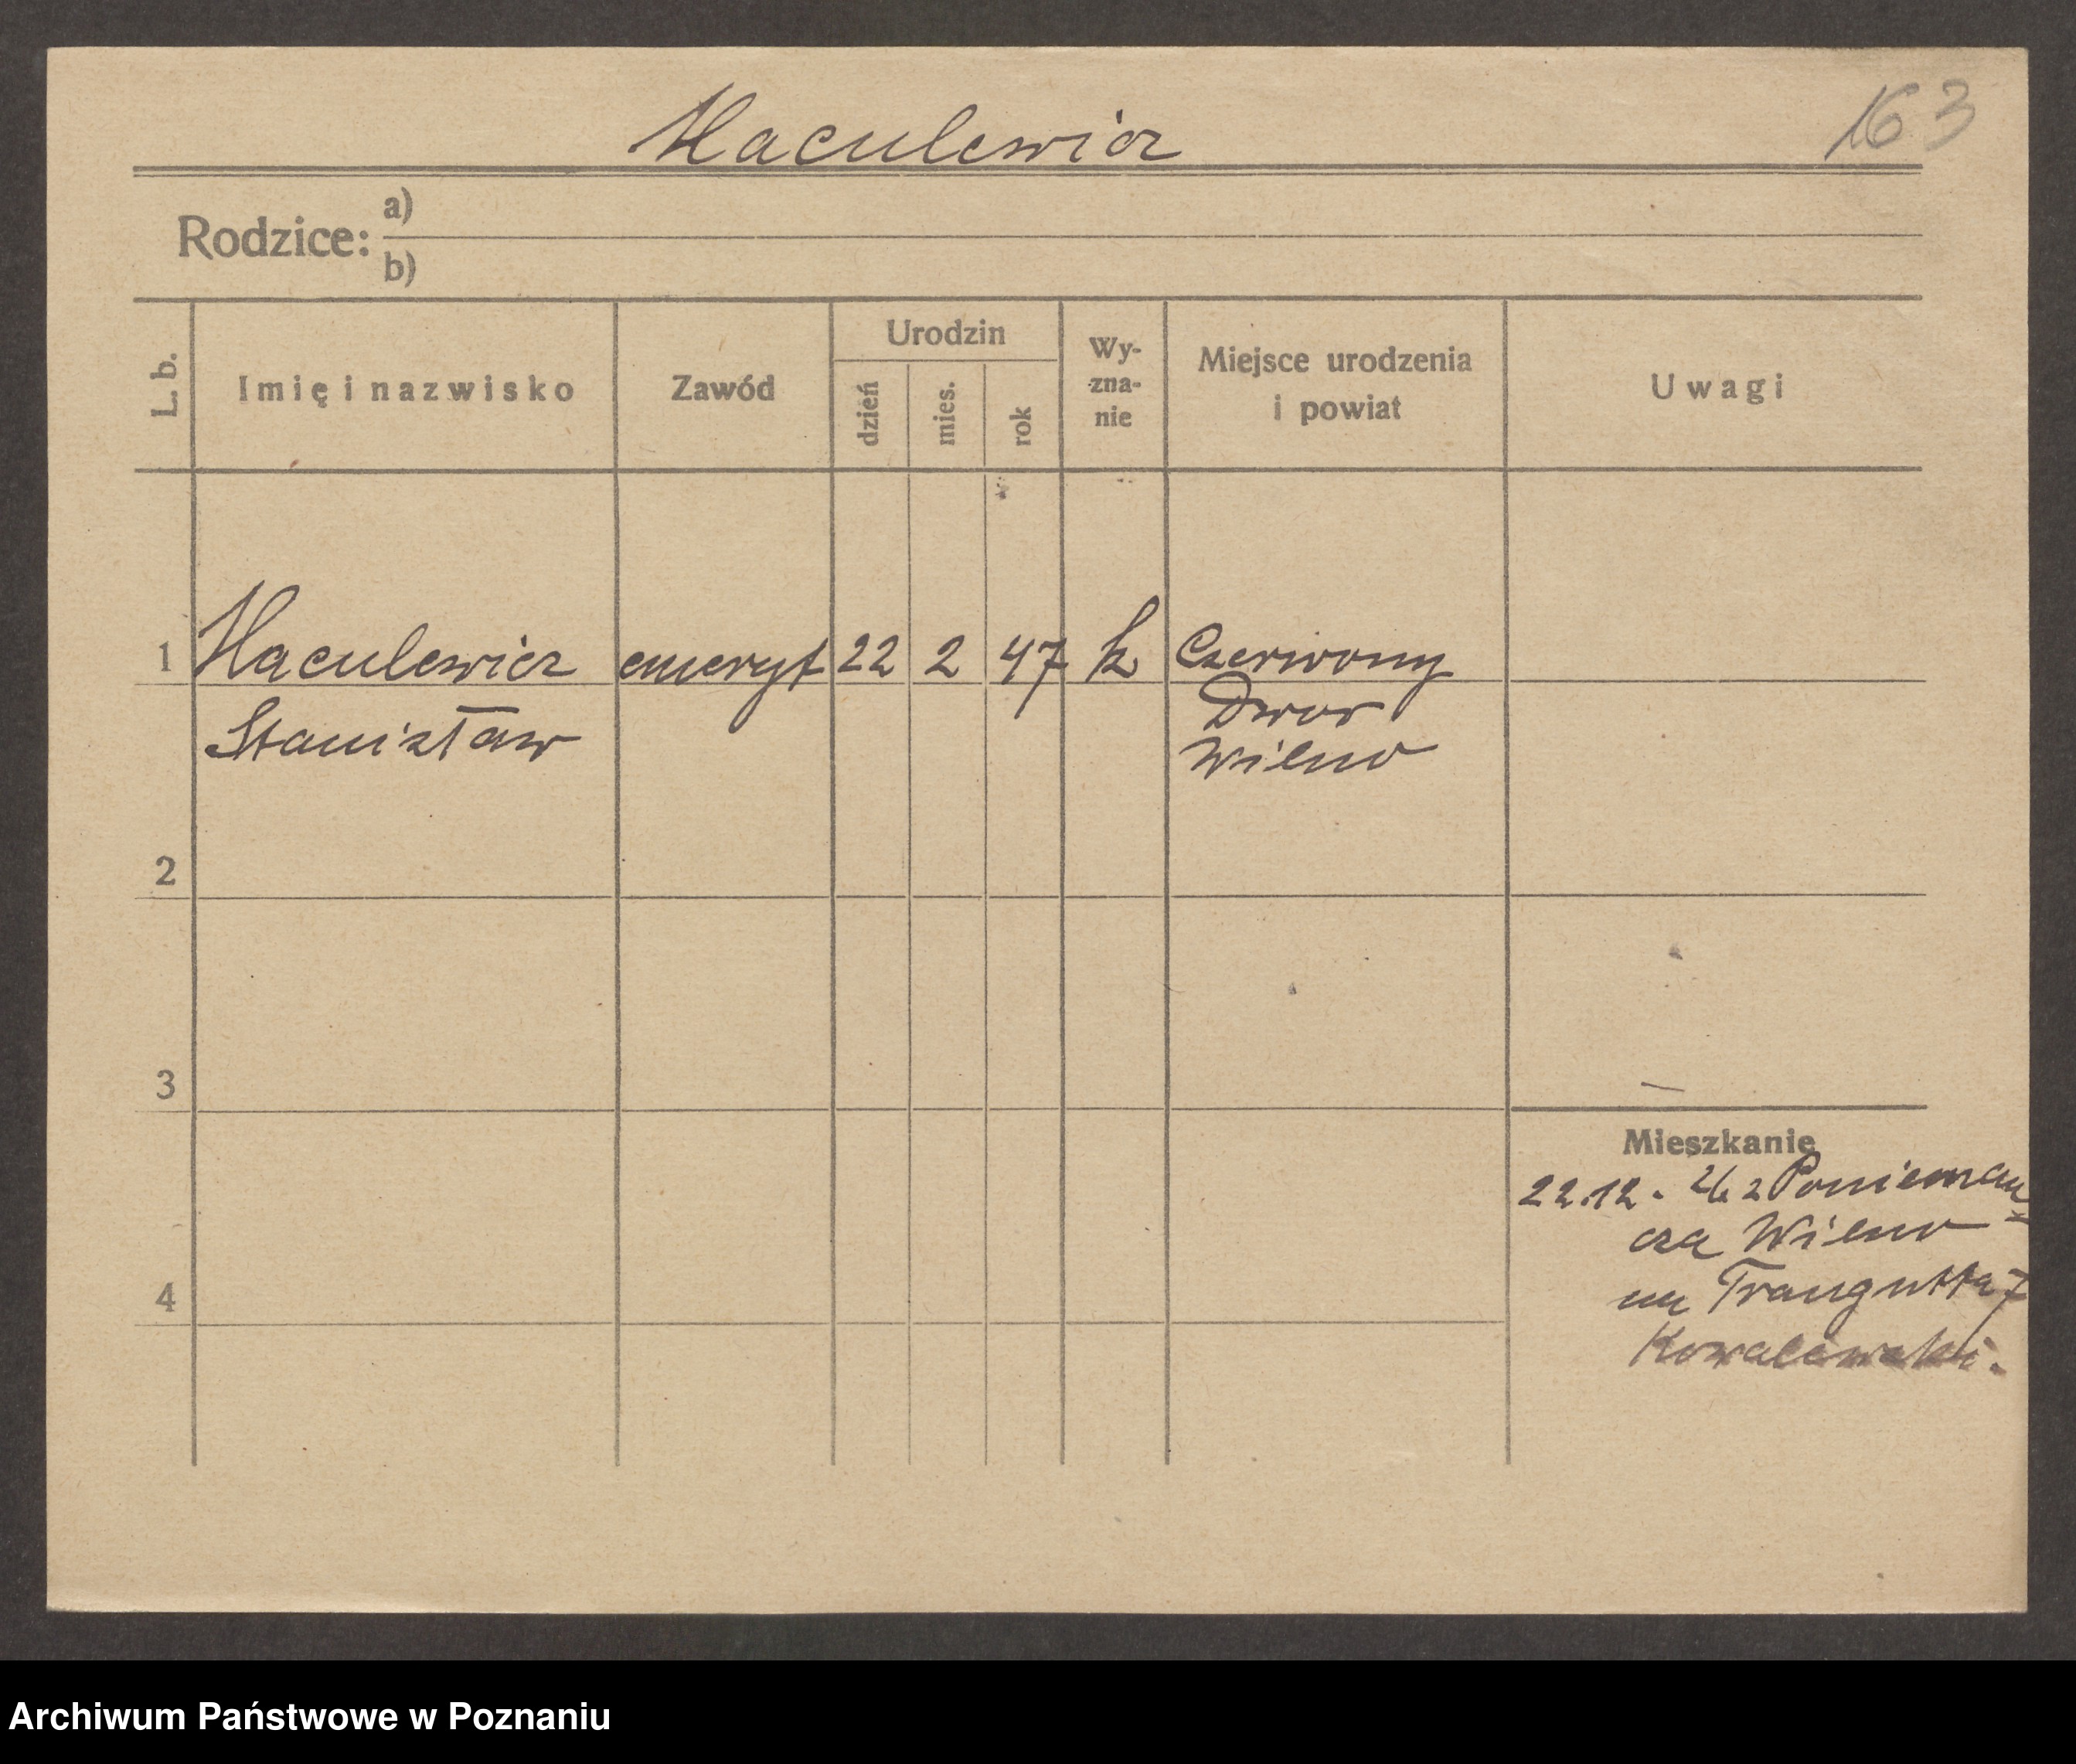 Haculewicz
163
Rodzice:
a)
b)
L. b.
Imię i nazwisko
Zawód
Urodzin
dzień
mies.
rok
Wy-
zna-
nie
Miejsce urodzenia
i powiat
Uwagi
1 Haculewicz emeryt 22 2 47 k Czerwony
Stanisław
Dwor
Wilno
2
3
4
Mieszkanie
22.12. z
cza Wilno
Trauguta 7
Kowalewski.
Archiwum Państwowe w Poznaniu